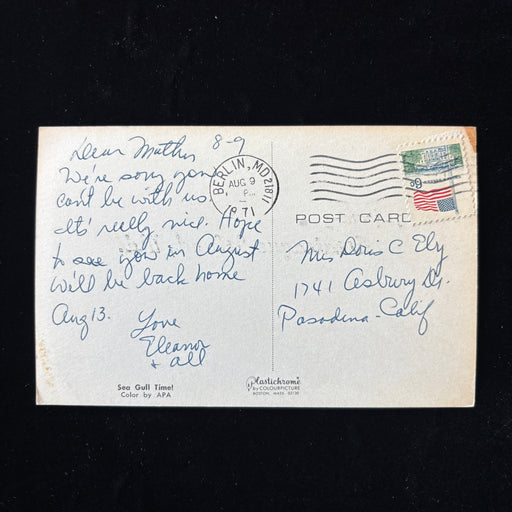 Dear Mother 8-9
We're sorry you
can't be with us.
It's really nice. Hope
to see you in August
Will be back home
Aug 13.
Love
Eleanor
+ all
BERLIN, MD 21811
AUG 9
1971
6c
POST CARD
Mrs Doris C Ely
1741 Asbury Dr.
Pasadena - Calif
Sea Gull Time!
Color by APA
Plastichrome
by COLOURPICTURE
BOSTON, MASS. 02130